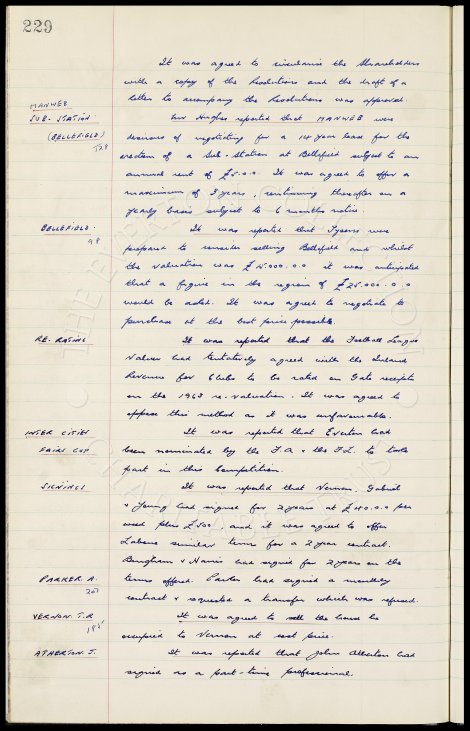 229
It was agreed to circularise the Shareholders
with a copy of the Resolutions and the draft of a
letter to accompany the Resolutions was approved.
MANWEB
SUB-STATION
(BELLEFIELD)
728
Mr Hughes reported that MANWEB were
desirous of negotiating for a 14 year lease for the
erection of a Sub-Station at Bellefield subject to an
annual rent of £5.0.0. It was agreed to offer a
maximum of 3 years, continuing thereafter on a
yearly basis subject to 6 months notice.
BELLEFIELD
98
It was reported that Tysons were
prepared to consider selling Bellefield and whilst
the valuation was £15.000.0.0 it was anticipated
that a figure in the region of £25.000.0.0
would be asked. It was agreed to negotiate to
purchase at the best price possible.
RE-RATING
It was reported that the Football League
Valuer had tentatively agreed with the Inland
Revenue for Clubs to be rated on Gate receipts
on the 1963 re-valuation. It was agreed to
oppose this method as it was unfavourable.
INTER CITIES
FAIRS CUP
It was reported that Everton had
been nominated by the F.A. & the F.L. to take
part in this Competition.
SIGNINGS
It was reported that Vernon, Gabriel
& Young had signed for 2 years at per
week plus £500 and it was agreed to offer
Labone similar terms for a 2 year contract.
Bingham & Harris had signed for 2 years on the
terms offered. Parker had signed a monthly
contract & requested a transfer which was refused.
PARKER A.
207
VERNON T.R
185
It was agreed to sell the house he
occupied to Vernon at cost price.
ATHERTON. J.
It was reported that John Atherton had
signed as a part-time professional.